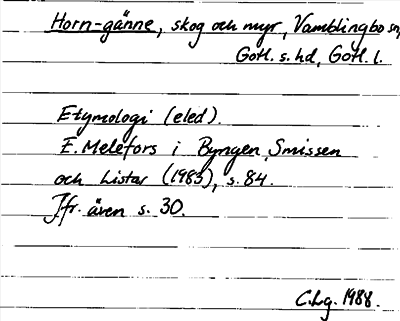 Horn-gänne, skog och myr, Vamblingbo sn,
Gotl. s. hd, Gotl. l.
Etymologi (eled).
E. Melefors i Byngen, Smissen
och Listar (1983), s. 84.
Jfr. även s. 30.
C.Lg. 1988.